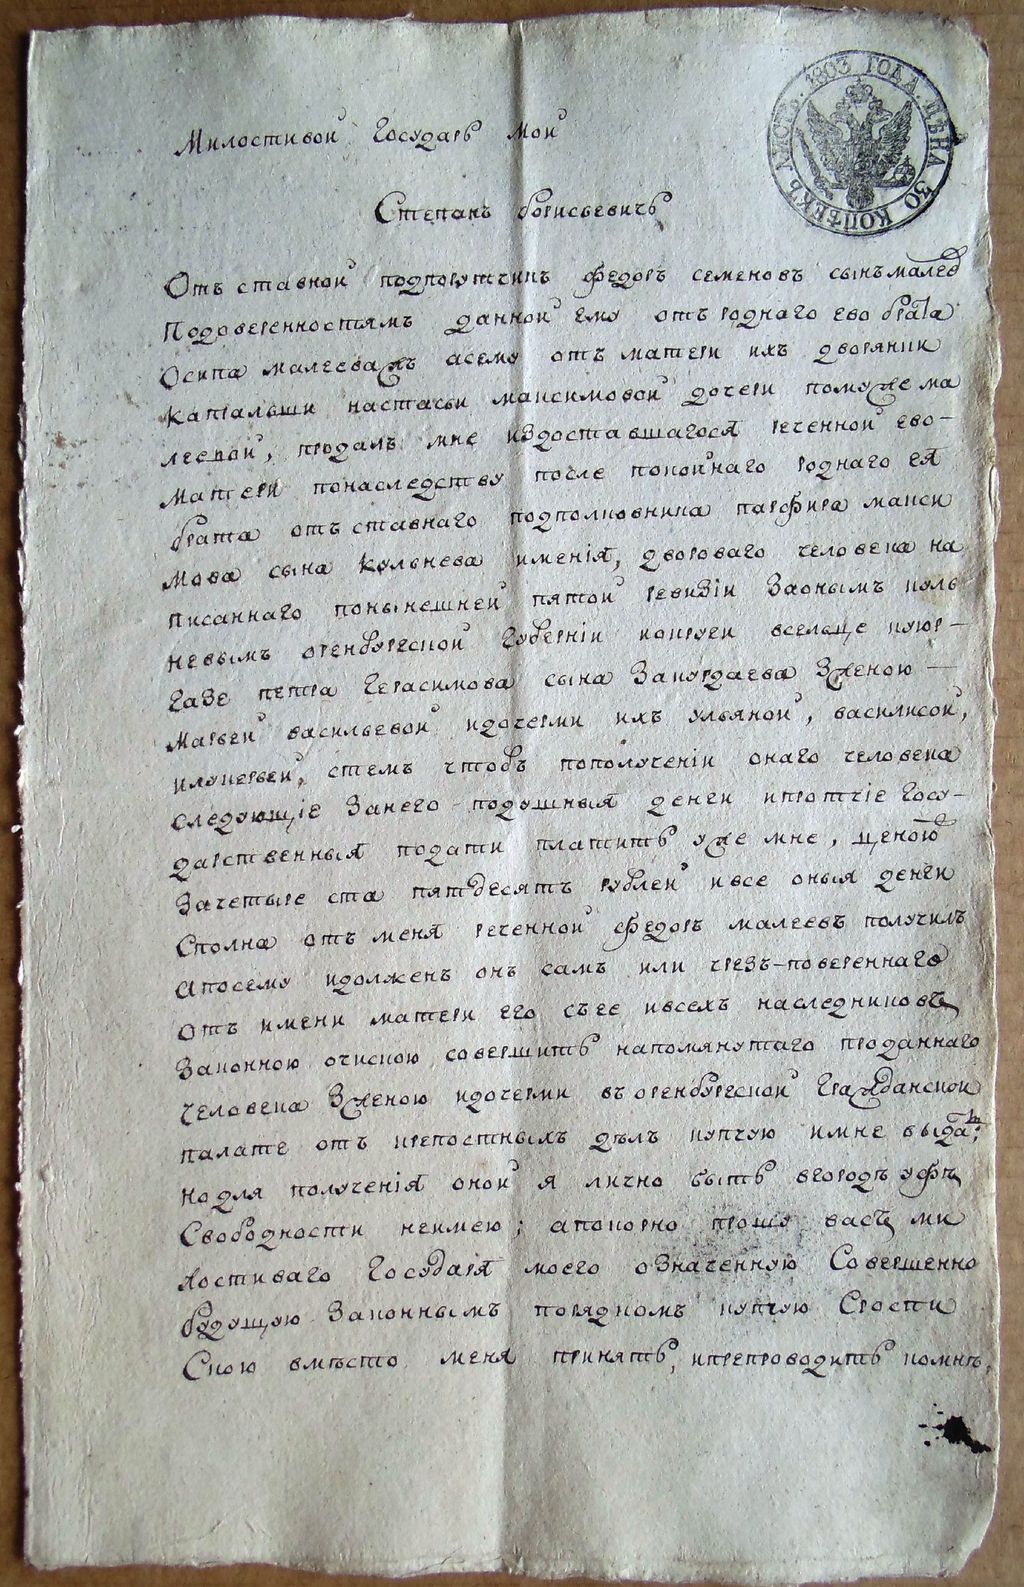 ЛИСТЪ. 1803 ГОДА. ЦѢНА 30 КОПѢЕКЪ
Милостивой Государь мой
Степанъ борисьевичь
Отъ ставной подпорутчикъ федоръ семеновъ сынъ малеев
Подоверенностямъ данной ему отъ роднаго ево брата
Осипа малеева хъ асему отъ матери ихъ дворянки
капральши настасьи максимовой дочери помуже ма
леевой, продалъ мне издоставшагося реченной ево-
матери понаследству после покойнаго роднаго ея
брата отъ ставнаго подполковника парфира макси
мова сына кульнева имения, двороваго человека на
писаннаго понынешней пятой ревизіи Заонымъ куль
невымъ оренбургской Губерніи вселце
Газе петра Герасимова сына Закурдаева Зженою —
марьей васильевой идочерми ихъ ульяной, василисой,
илукерьей, стемъ чтобъ пополученіи онаго человека
следующіе Занего подушныя денги ипротчіе Госу-
дарственныя подати платить уже мне, ценою
Зачетыре ста пятдесятъ рублей ивсе оныя денги
Сполна отъ меня реченной федоръ малеевъ получилъ
апосему идолженъ онъ самъ или чрезъ-повереннаго
отъ имени матери его съее ивсехъ наследниковъ
Законною очискою совершить напомянутаго проданнаго
человека Зженою идочерми въ оренбургской Гражданской
палате отъ крепостныхъ дѣлъ купчую имне выдать;
но для полученія оной я лично быть вгородъ уфѣ
Свободности неимею; апопорно прошу васъ ми
лостиваго Государя моего означенную Совершенно
будущую Законнымъ порядкомъ купчую Срости
Скою вмѣсто меня принять, ипрепроводить комнѣ.